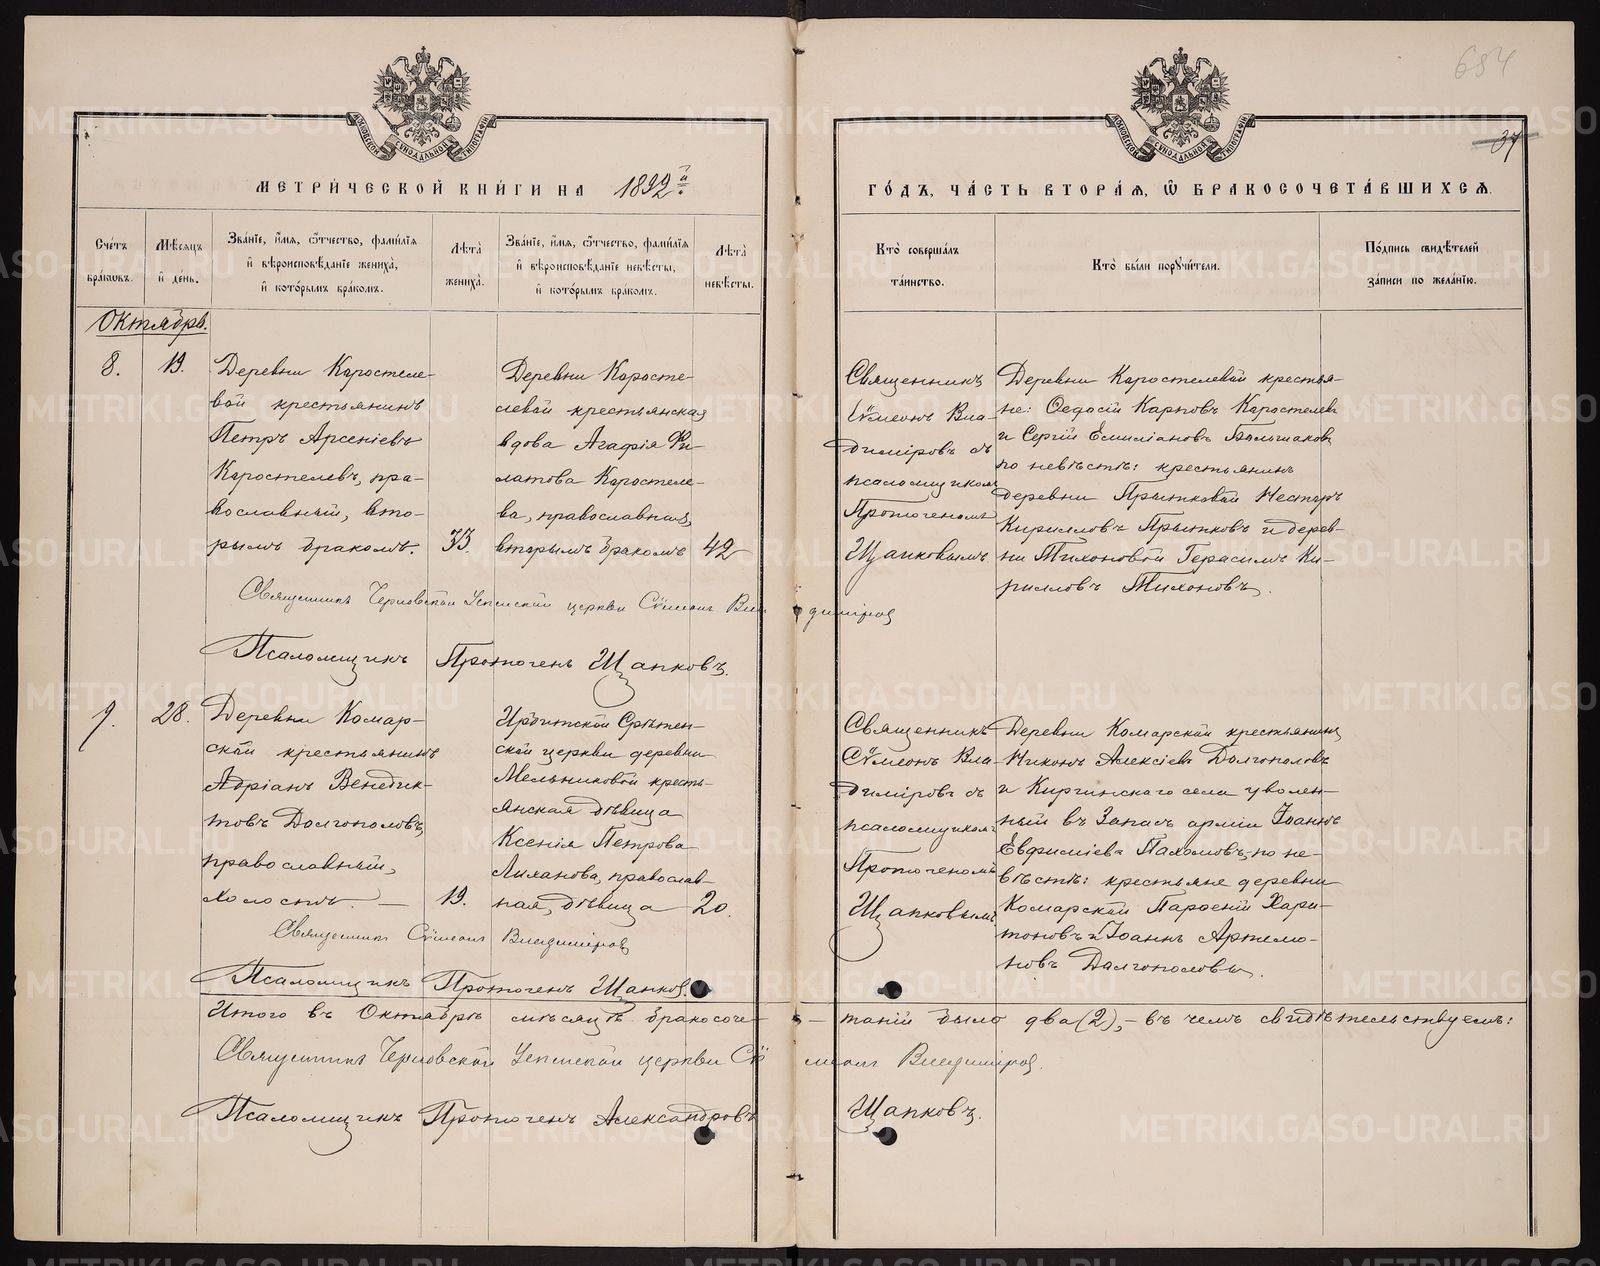 654
37
МОСКОВСКОЙ СѴНОДАЛЬНОЙ ТИПОГРАФІИ
МОСКОВСКОЙ СѴНОДАЛЬНОЙ ТИПОГРАФІИ
МЕТРИ́ЧЕСКОЙ КНИ́ГИ НА 1892й
ГО́ДЪ, ЧА́СТЬ ВТОРА́Ѧ, Ѽ БРАКОСОЧЕТА́ВШИХСѦ.
Сче́тъ бра́кѡвъ.
Мѣ́сѧцъ и҆ де́нь.
Зва́нїе, и҆́мѧ, ѻ҆́тчество, фамі́лїѧ и҆ вѣроисповѣ́данїе жениха̀, и҆ кото́рымъ бра́комъ.
Лѣта̀ жениха̀.
Зва́нїе, и҆́мѧ, ѻ҆́тчество, фамі́лїѧ и҆ вѣроисповѣ́данїе невѣ́сты, и҆ кото́рымъ бра́комъ.
Лѣта̀ невѣ́сты.
Кто̀ соверша́лъ та́инство.
Кто̀ бы́ли порꙋчи́тели.
По́дпись свидѣ́телей за́писи по жела́нїю.
Октябрь.
8.
19.
Деревни Каростеле-
вой крестьянинъ
Петръ Арсеніевъ
Каростелевъ, пра-
вославный, вто-
рымъ бракомъ.
33.
Деревни Коросте-
левой крестьянская
вдова Агафія Фи-
латова Коростеле-
ва, православная,
вторымъ бракомъ
42
Священникъ
Сѵмеонъ Вла-
диміровъ съ
псаломщикомъ
Протогеномъ
Щапковымъ
Деревни Каростелевой крестья-
не: Ѳедосій Карповъ Каростелевъ
и Сергій Емиліановъ Большаковъ
по невѣстѣ: крестьянинъ
деревни Прытковой Несторъ
Кирилловъ Прытковъ и дерев-
ни Тихоновой Герасимъ Ки-
рилловъ Тихоновъ.
Священникъ Черновской Успенской церкви Сѵмеонъ Владиміровъ
Псаломщикъ Протогенъ Щапковъ.
9.
28.
Деревни Комар-
ской крестьянинъ
Адріанъ Венедик-
товъ Долгополовъ,
православный,
холостъ. —
19.
Ирбитской Срѣтен-
ской церкви деревни
Мельниковой кресть-
янская дѣвица
Ксенія Петрова
Лыханова, православ-
ная, дѣвица
20.
Священникъ
Сѵмеонъ Вла-
диміровъ съ
псаломщикомъ
Протогеномъ
Щапковымъ
Деревни Комарской крестьянинъ
Никонъ Алексіевъ Долгополовъ
и Киргинскаго села уволен-
ный въ Запасъ арміи Іоаннъ
Евфиміевъ Пахомовъ, по не-
вѣстѣ: крестьяне деревни
Комарской Парѳеній Хари-
тоновъ и Іоаннъ Артемо-
новъ Долгополовы.
Священникъ Сѵмеонъ Владиміровъ
Псаломщикъ Протогенъ Щапковъ.
Итого въ Октябрѣ мѣсяцѣ бракосоче-таній было два (2), - въ чемъ свидѣтельствуемъ:
Священникъ Черновской Успенской церкви Сѵмеонъ Владиміровъ.
Псаломщикъ Протогенъ Александровъ Щапковъ.
METRIKI.GASO-URAL.RU